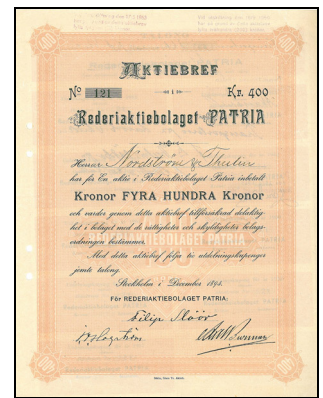 400 400
AKTIEBREF
No 121 Kr. 400
i
Rederiaktiebolaget PATRIA
Herrar Nordström & Thulin
har för En aktie i Rederiaktiebolaget Patria inbetalt
Kronor FYRA HUNDRA Kronor
och varder genom detta aktiebref tillförsäkrad delaktig-
het i bolaget med de rättigheter och skyldigheter bolags-
ordningen bestämmer.
REDERIAKTIEBOLAGET PATRIA
Med detta aktiebref följa tio utdelningskuponger
jemte talong.
Stockholm i December 1894.
För REDERIAKTIEBOLAGET PATRIA:
Filip
400 400